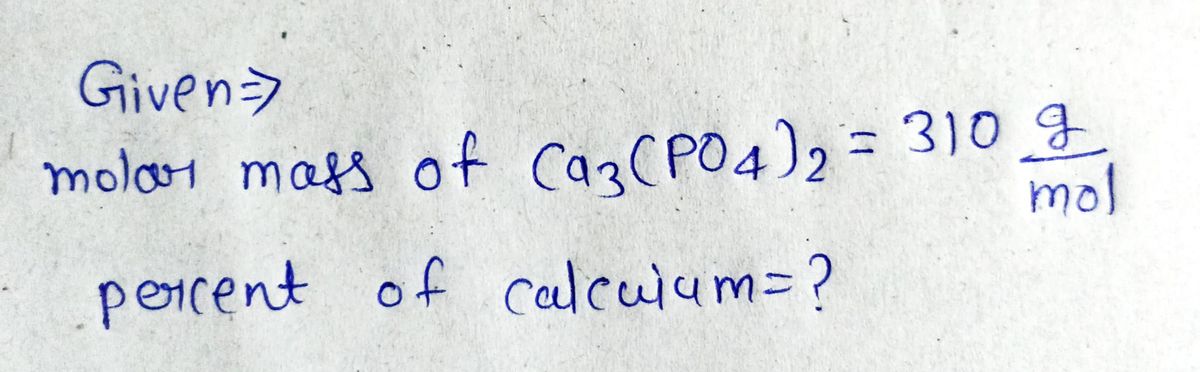 Given⇒
molar mass of Ca3(PO4)2 = 310 g/mol
percent of calcuium=?